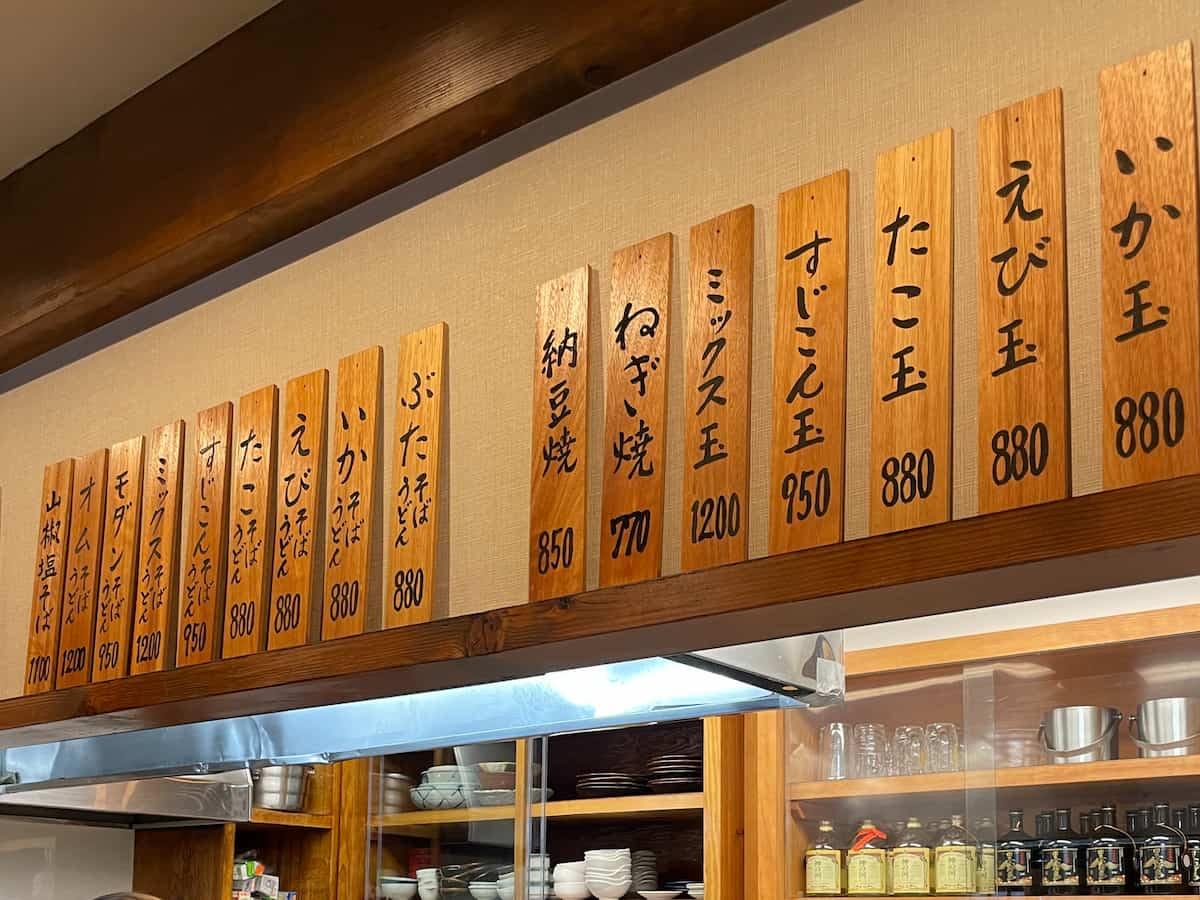 いか玉 880
えび玉 880
たこ玉 880
すじこん玉 950
ミックス玉 1200
ねぎ焼 770
納豆焼 850
ぶたそばうどん 880
いかそばうどん 880
えびそばうどん 880
たこそばうどん 880
すじこんそばうどん 950
ミックスそばうどん 1200
モダンそばうどん 950
オムそばうどん 1200
山椒塩そば 1100